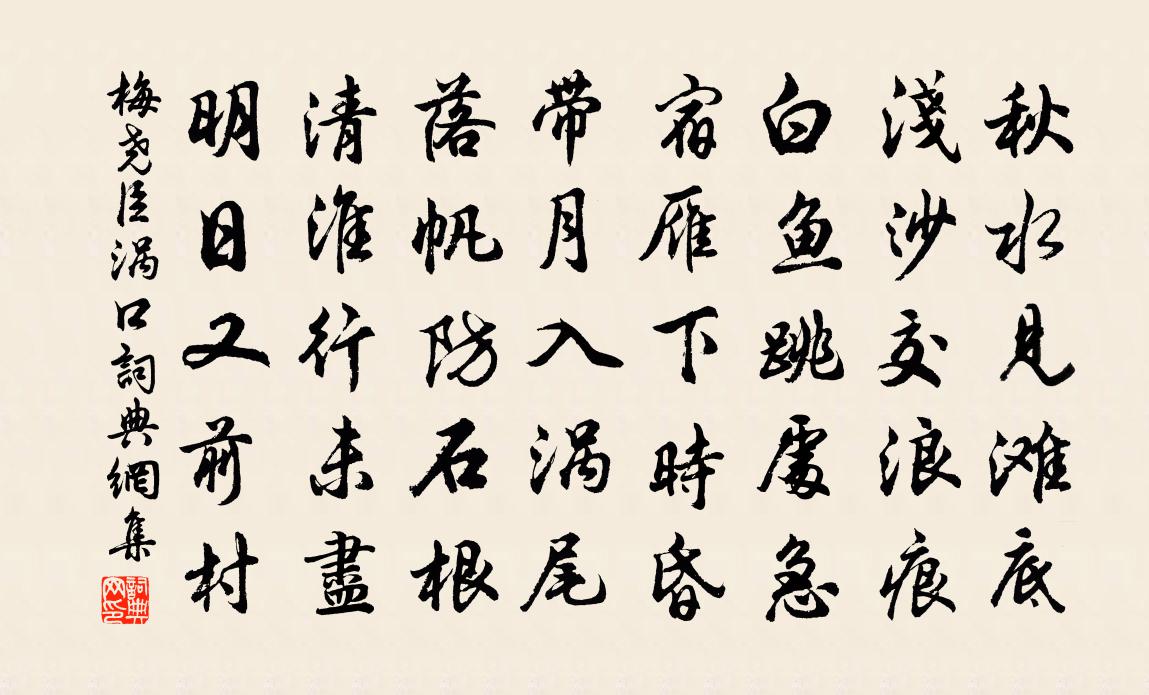 秋水見滩底
淺沙交浪痕
白鱼跳處急
宿雁下時昏
带月入涡尾
落帆防石根
清淮行未盡
明日又前村
梅尧臣涡口詞典網集
詞典网印